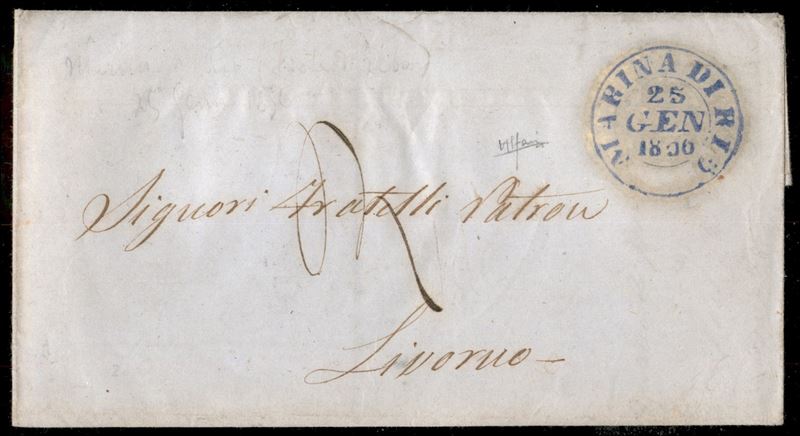 MARINA DI RIO
25
GEN
1856
Signori Fratelli Patron
Livorno